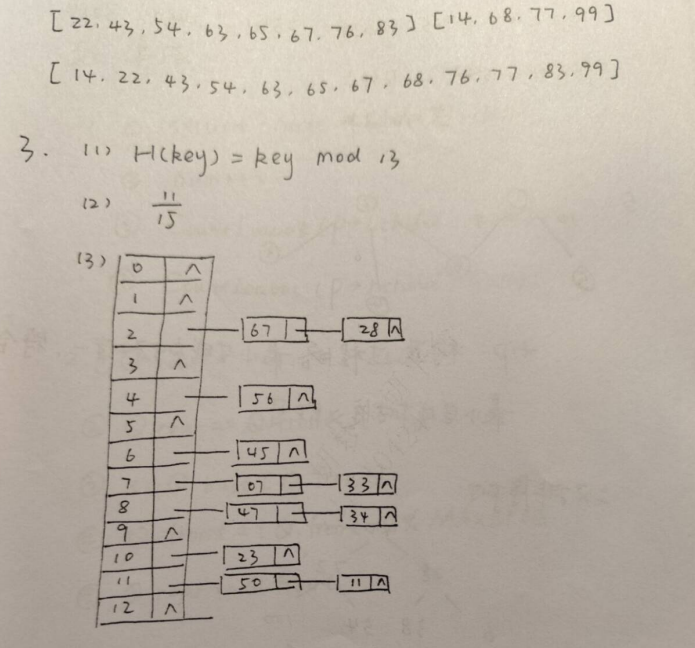 [22. 43, 54. 63, 65, 67. 76, 83] [14, 68. 77. 99]
[14. 22, 43, 54, 63, 65, 67, 68, 76, 77, 83, 99]
3. (1) H(key) = key mod 13
(2) 11/15
(3) 0 ∧
1 ∧
2 67 28 ∧
3 ∧
4 56 ∧
5 ∧
6 45 ∧
7 07 33 ∧
8 47 34 ∧
9 ∧
10 23 ∧
11 50 11 ∧
12 ∧